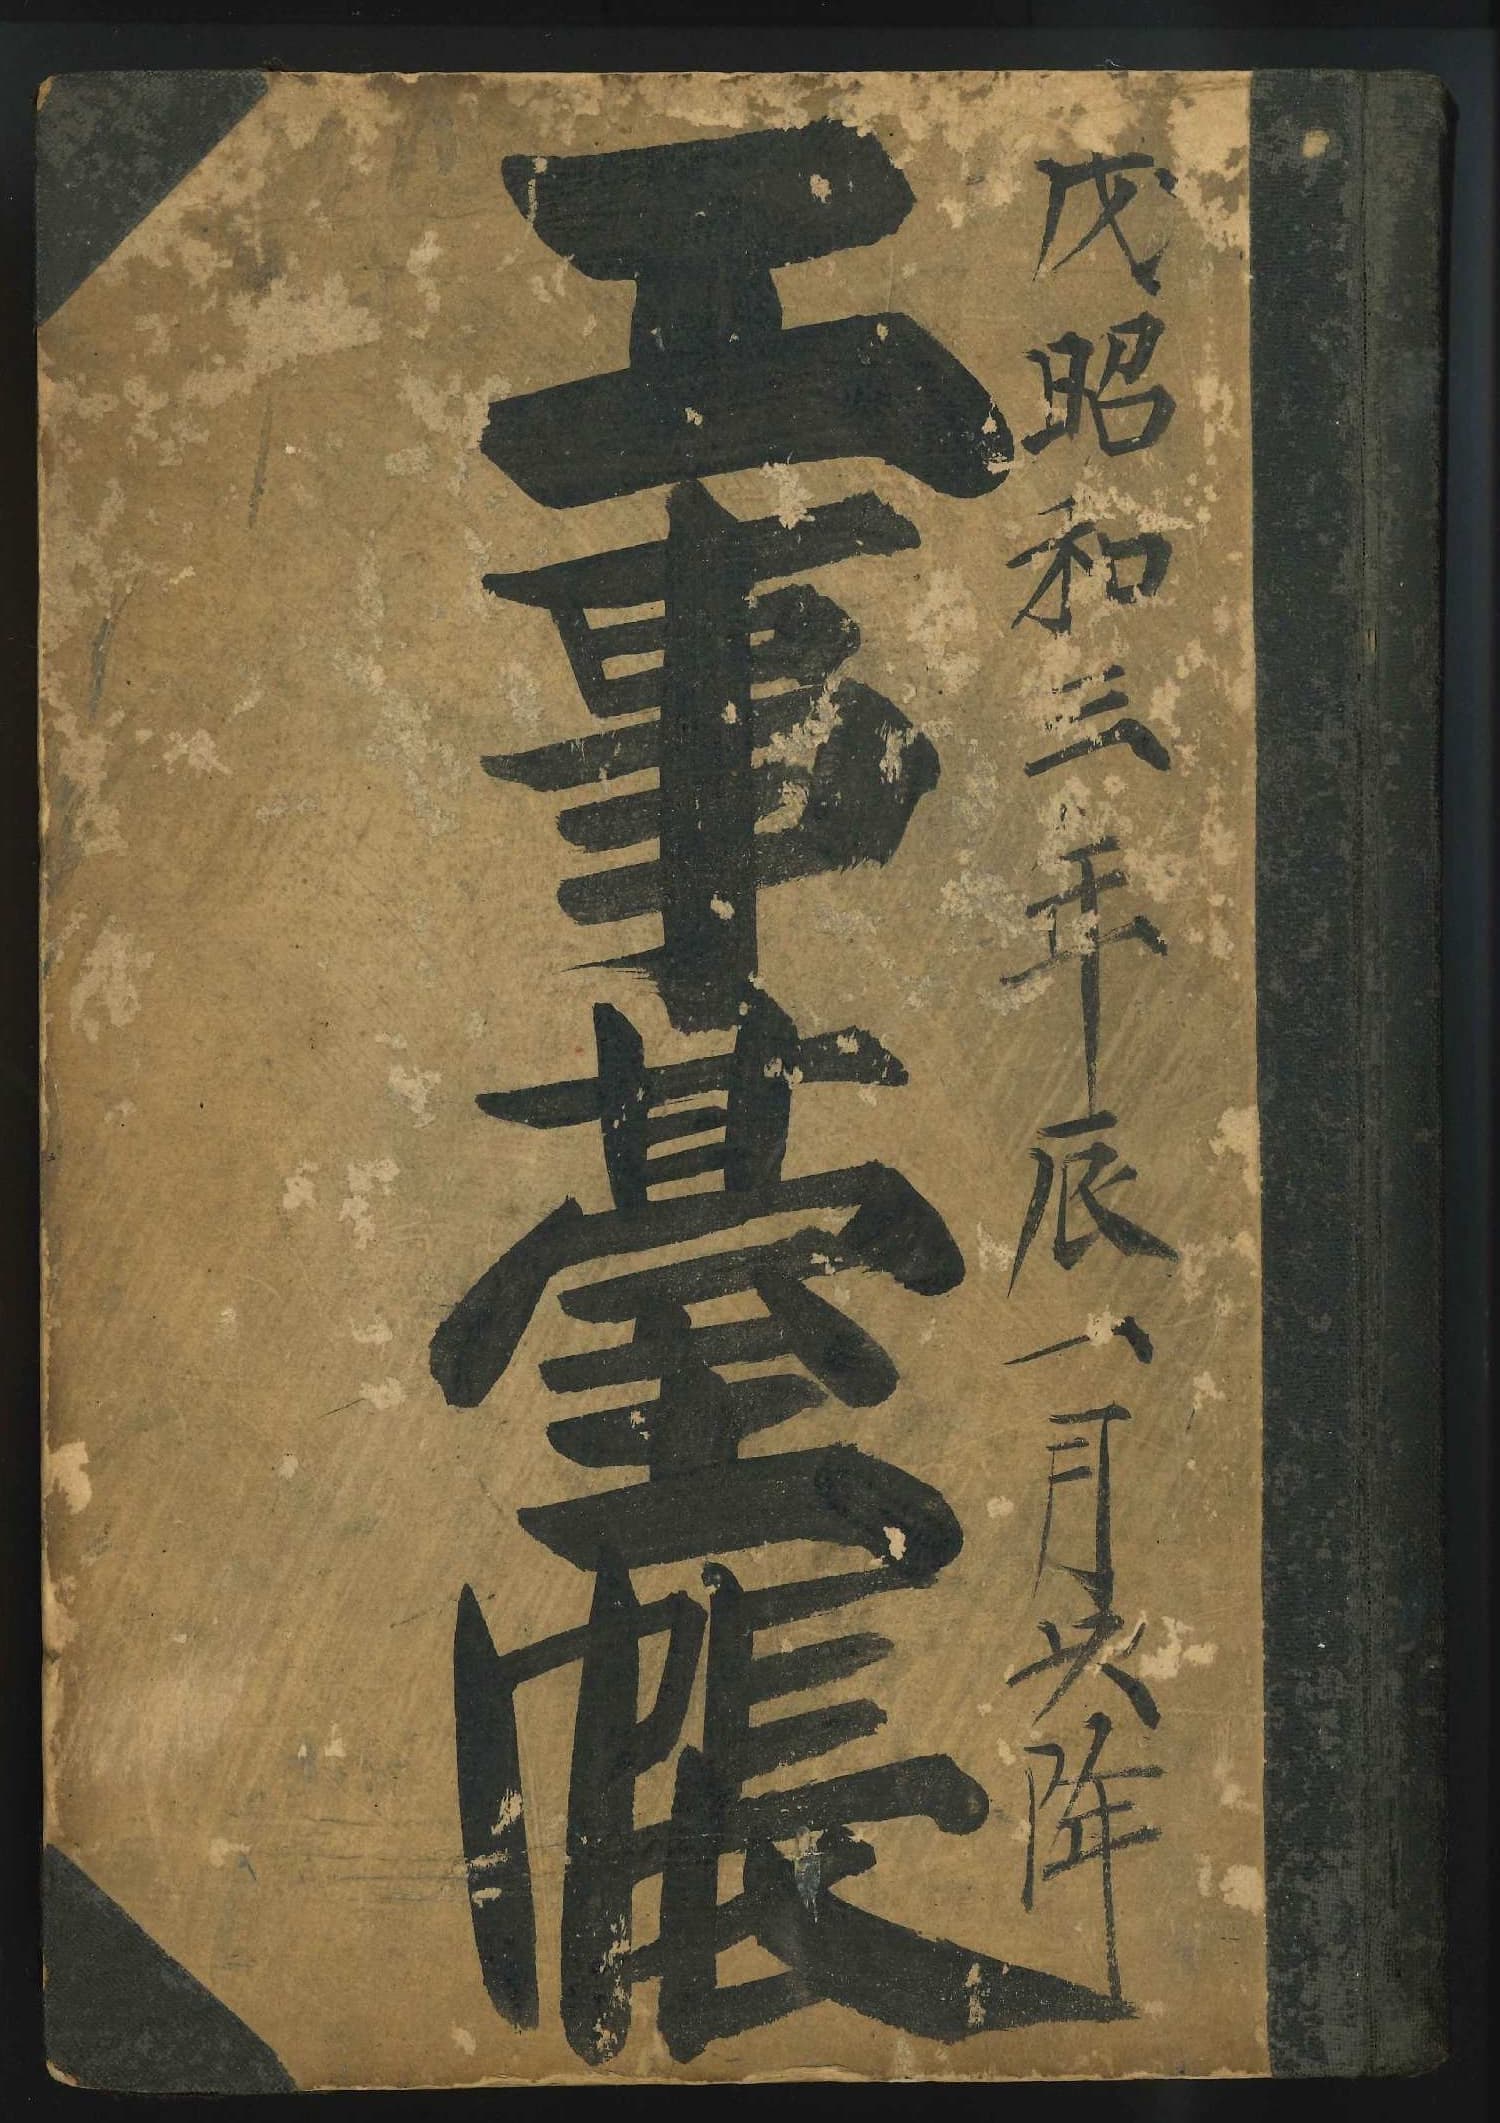 戊昭和三年辰一月以降
工事臺帳